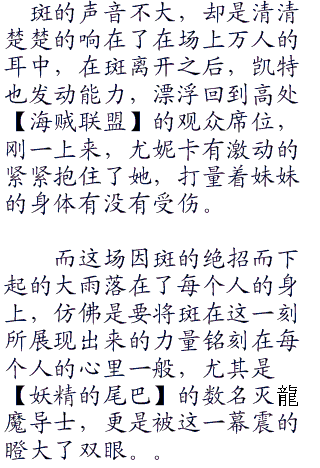 斑的声音不大，却是清清
楚楚的响在了在场上万人的
耳中，在斑离开之后，凯特
也发动能力，漂浮回到高处
【海贼联盟】的观众席位，
刚一上来，尤妮卡有激动的
紧紧抱住了她，打量着妹妹
的身体有没有受伤。
而这场因斑的绝招而下
起的大雨落在了每个人的身
上，仿佛是要将斑在这一刻
所展现出来的力量铭刻在每
个人的心里一般，尤其是
【妖精的尾巴】的数名灭龍
魔导士，更是被这一幕震的
瞪大了双眼。。